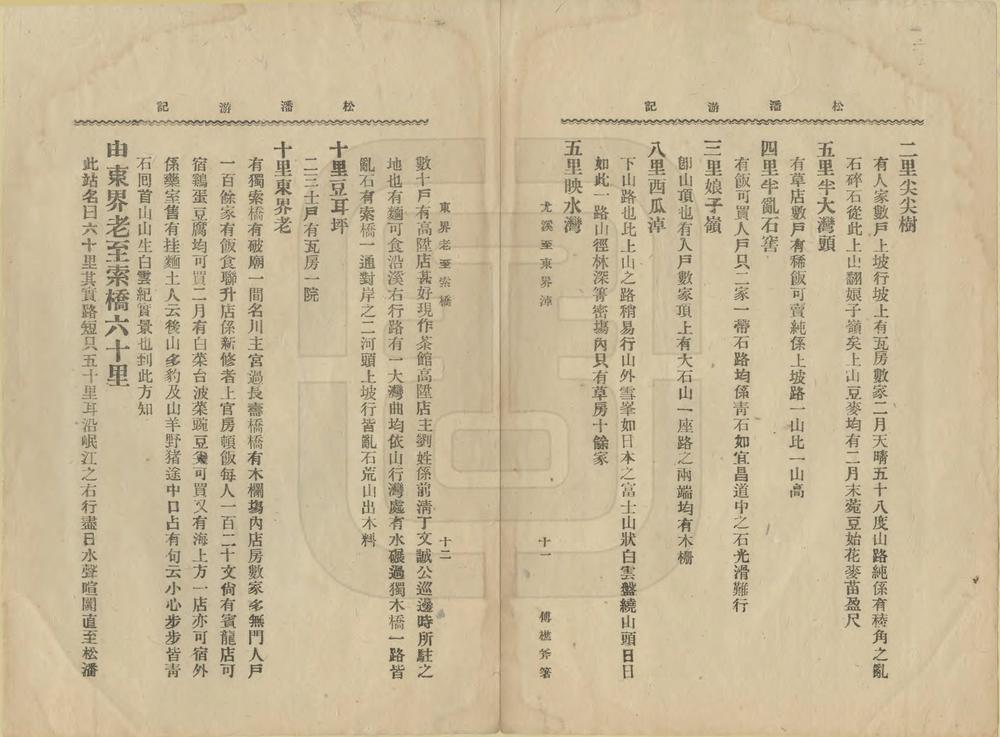 松潘游記
二里尖尖樹
有人家數戶上坡行坡上有瓦房數家二月天晴五十八度山路純係有稜角之亂
石碎石從此上山翻娘子嶺矣上山豆麥均有二月末菀豆始花麥苗盈尺
五里半大灣頭
有草店數戶有稀飯可賣純係上坡路一山比一山高
四里半亂石窖
有飯可買人戶只二家一帶石路均係靑石如宜昌道中之石光滑難行
三里娘子嶺
卽山頂也有人戶數家頂上有大石山一座路之兩端均有木柵
八里西瓜淖
下山路也比上山之路稍易行山外雪峯如日本之富士山狀白雲盤繞山頭日日
如此一路山徑林深箐密塲內只有草房十餘家
五里映水灣
尤溪至東界淖
十一
傅樵斧著
松潘游記
東界老至索橋
十二
數十戶有高陞店甚好現作茶館高陞店主劉姓係前淸丁文誠公巡邊時所駐之
地也有麵可食沿溪右行路有一大灣曲均依山行灣處有水碾過獨木橋一路皆
亂石有索橋一通對岸之二河頭上坡行皆亂石荒山出木料
十里豆耳坪
二三十戶有瓦房一院
十里東界老
有獨索橋有破廟一間名川主宮過長壽橋橋有木欄塲內店房數家多無門人戶
一百餘家有飯食聯升店係新修者上官房頓飯每人一百二十文尙有賓龍店可
宿鷄蛋豆腐均可買二月有白菜台波菜豌豆尖可買又有海上方一店亦可宿外
係藥室舊有挂麵土人云後山多豹及山羊野猪途中口占有句云小心步步皆靑
石回首山山生白雲紀實景也到此方知
由東界老至索橋六十里
此站名曰六十里其實路短只五十里耳沿岷江之右行盡日水聲喧闐直至松潘